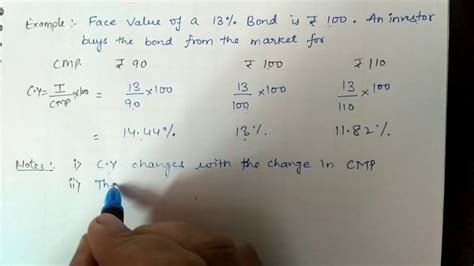 Example :- Face Value of a 13% Bond is ₹ 100. An investor
buys the bond from the market for
CMP ₹ 90 ₹ 100 ₹ 110
C.Y = I/CMP x100 = 13/90 x100 13/100 x100 13/110 x100
= 14.44% 13% 11.82%
Notes :- i) C.Y changes with the change in CMP
ii) Th